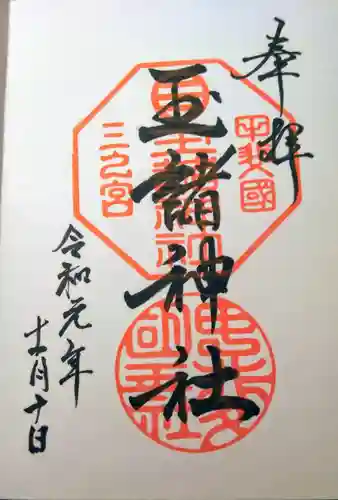 奉拝
甲斐國
玉諸神社
三乃宮
令和元年
十一月十日